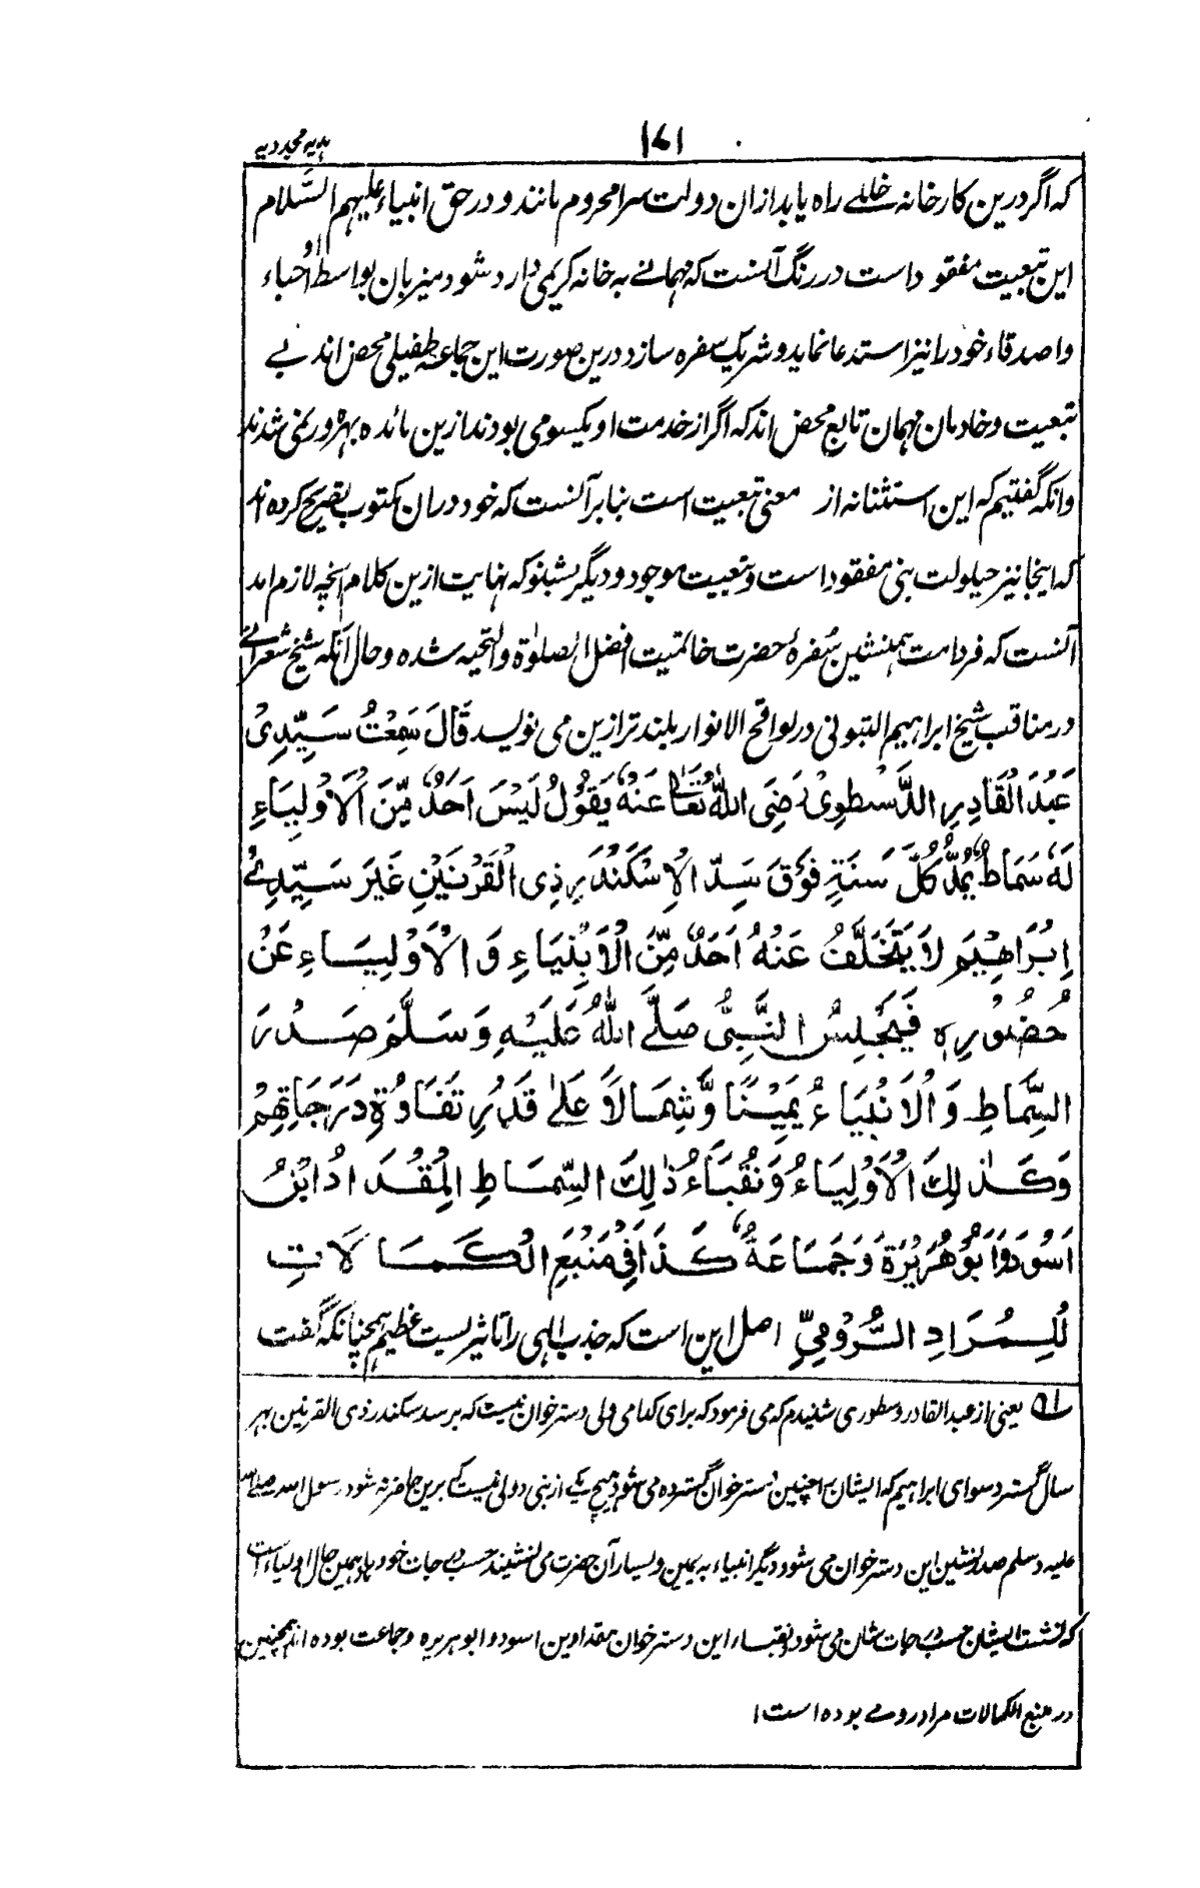 ہدیہ مجددیہ
۱۷۱
کہ اگر درین کارخانہ خللے راہ یابد ازان دولت سرا محروم مانند و در حق انبیاء علیہم السَّلام
این تبعیت مفقود است در رنگ آنست کہ مہمانے بہ خانہ کریمی وارد شود میزبان بواسطۂ او احباء
و اصدقاء خود را نیز استدعا نماید و شریک سفرہ سازد درین صورت این جماعہ طفیلی محض اند بے
تبعیت و خادمان مہمان تابع محض اند کہ اگر از خدمت او یکسو می بودند ازین مائدہ بہرہ ور نمی شدند
و انکہ گفتیم کہ این استثنانہ از معنی تبعیت است بنابر آنست کہ خود دران مکتوب تصریح کردہ اند
کہ اینجا نیز حیلولت بنی مفقود است و تبعیت موجود و دیگر بشنو کہ نہایت ازین کلام انچہ لازم امد
آنست کہ فرد امت ہمنشین سُفرۂ حضرت خاتمیت افضل الصلوٰۃ والتحیہ شدہ و حال آنکہ شیخ شعرانے
در مناقب شیخ ابراہیم المتبولی در لواقح الانوار بلند تر ازین می نویسد قَالَ سَمِعْتُ سَيِّدِىْ
عَبْدَ الْقَادِرِ الدَّسْطوِىْ رَضِىَ اللهُ تَعَالٰى عَنْهُ يَقُوْلُ لَيْسَ اَحَدٌ مِّنَ الْاَوْلِيَاءِ
لَهٗ سَمَاطٌ يُمَدُّ كُلَّ سَنَةٍ فَوْقَ سَدِّ الْاِسْكَنْدَرِ ذِى الْقَرْنَيْنِ غَيْرَ سَيِّدِىْ
اِبْرَاهِيْمَ لَا يَتَخَلَّفُ عَنْهُ اَحَدٌ مِّنَ الْاَنْبِيَاءِ وَ الْاَوْلِيَاءِ عَنْ
حُضُوْرِهٖ فَيَجْلِسُ النَّبِىُّ صَلَّے اللهُ عَلَيْهِ وَسَلَّمَ صَدْرَ
السِّمَاطِ وَالْاَنْبِيَاءُ يَمِيْنًا وَّشِمَالًا عَلٰى قَدْرِ تَفَاوُةِ دَرَجَاتِهِمْ
وَكَذٰلِكَ الْاَوْلِيَاءُ وَنُقَبَاءُ ذٰلِكَ السِّمَاطِ الْمِقْدَادُ ابْنُ
اَسْوَدَ وَاَبُوْهُرَيْرَةَ وَجَمَاعَةٌ كَذَا فِىْ مَنْبَعِ الْكَمَالَاتِ
لِلْمُرَادِ الرُّوْمِىِّ اصل این است کہ جذب الہی را تاثیریست عظیم ہمچنانکہ گفت
یعنی از عبد القادر دسطوری شنیدم کہ می فرمود کہ برای کدامی ولی دسترخوان نیست کہ بر سد سکندر ذی القرنین ہر
سال گسترد سوای ابراہیم کہ ایشان را چنین دسترخوان گستردہ می شود ہیچ یکے از بنی و ولی نیست کہ برین حاضر نہ شود رسول اللہ صلے اللہ
علیہ وسلم صدر نشین این دسترخوان می شود و دیگر انبیاء بہ یمین و یسار آن حضرت می نشینند حسب درجات خود و ہمین حال اولیاء است
کہ نشست ایشان حسب درجات شان می شود و نقباء این دسترخوان مقداد بن اسود و ابوہریرہ و جماعت بودہ اند ہمچنین
در منبع الکمالات مراد رومے بودہ است ۱